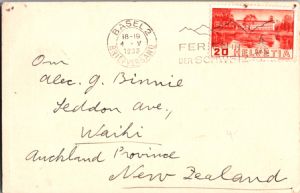 BASEL 2
18-19
BRIEFVERSAND
FER
DER SCHWEIZ
20 HELVETIA
Om
Alec. G. Binnie
Seddon Ave,
Waihi
Auckland Province
New Zealand